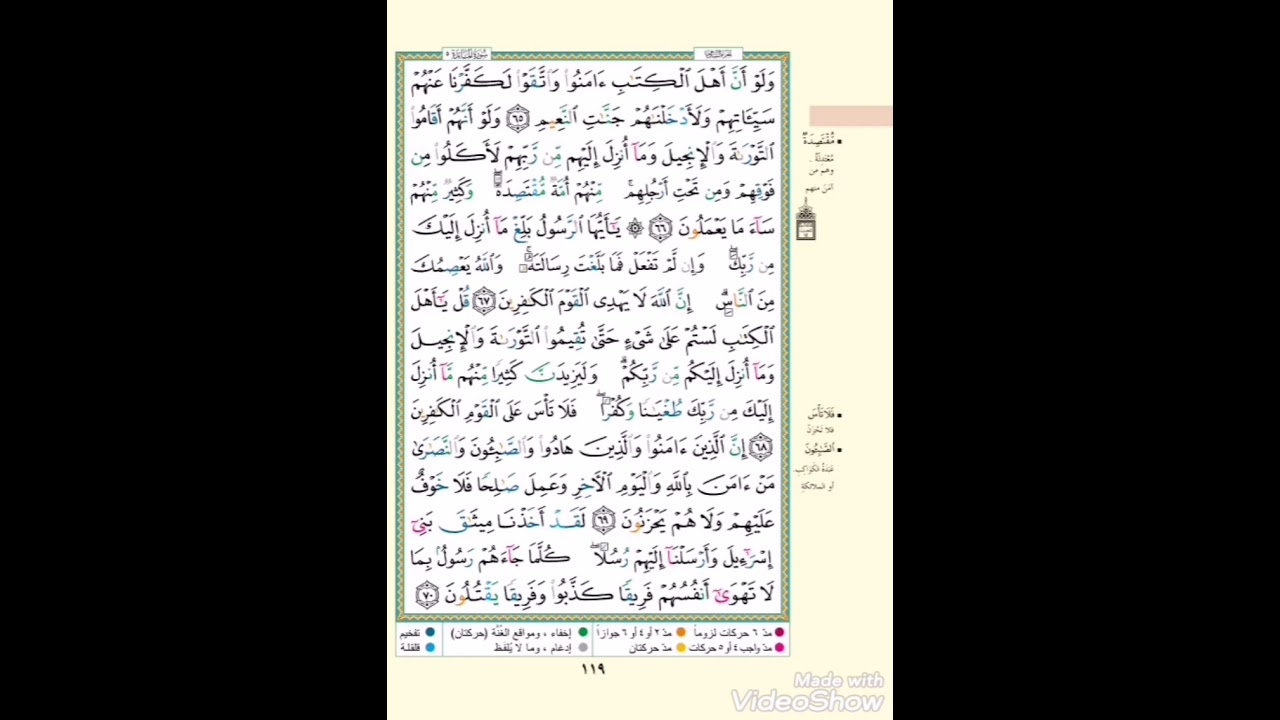 سورة المائدة ٥
الجزء السادس
وَلَوْ أَنَّ أَهْلَ ٱلْكِتَـٰبِ ءَامَنُوا۟ وَٱتَّقَوْا۟ لَكَفَّرْنَا عَنْهُمْ
سَيِّـَٔاتِهِمْ وَلَأَدْخَلْنَـٰهُمْ جَنَّـٰتِ ٱلنَّعِيمِ ٦٥ وَلَوْ أَنَّهُمْ أَقَامُوا۟
ٱلتَّوْرَىٰةَ وَٱلْإِنجِيلَ وَمَآ أُنزِلَ إِلَيْهِم مِّن رَّبِّهِمْ لَأَكَلُوا۟ مِن
فَوْقِهِمْ وَمِن تَحْتِ أَرْجُلِهِم ۚ مِّنْهُمْ أُمَّةٌ مُّقْتَصِدَةٌ ۖ وَكَثِيرٌ مِّنْهُمْ
سَآءَ مَا يَعْمَلُونَ ٦٦ ۞ يَـٰٓأَيُّهَا ٱلرَّسُولُ بَلِّغْ مَآ أُنزِلَ إِلَيْكَ
مِن رَّبِّكَ ۖ وَإِن لَّمْ تَفْعَلْ فَمَا بَلَّغْتَ رِسَالَتَهُۥ ۚ وَٱللَّهُ يَعْصِمُكَ
مِنَ ٱلنَّاسِ ۗ إِنَّ ٱللَّهَ لَا يَهْدِى ٱلْقَوْمَ ٱلْكَـٰفِرِينَ ٦٧ قُلْ يَـٰٓأَهْلَ
ٱلْكِتَـٰبِ لَسْتُمْ عَلَىٰ شَىْءٍ حَتَّىٰ تُقِيمُوا۟ ٱلتَّوْرَىٰةَ وَٱلْإِنجِيلَ
وَمَآ أُنزِلَ إِلَيْكُم مِّن رَّبِّكُمْ ۗ وَلَيَزِيدَنَّ كَثِيرًا مِّنْهُم مَّآ أُنزِلَ
إِلَيْكَ مِن رَّبِّكَ طُغْيَـٰنًا وَكُفْرًا ۖ فَلَا تَأْسَ عَلَى ٱلْقَوْمِ ٱلْكَـٰفِرِينَ
٦٨ إِنَّ ٱلَّذِينَ ءَامَنُوا۟ وَٱلَّذِينَ هَادُوا۟ وَٱلصَّـٰبِـُٔونَ وَٱلنَّصَـٰرَىٰ
مَنْ ءَامَنَ بِٱللَّهِ وَٱلْيَوْمِ ٱلْـَٔاخِرِ وَعَمِلَ صَـٰلِحًا فَلَا خَوْفٌ
عَلَيْهِمْ وَلَا هُمْ يَحْزَنُونَ ٦٩ لَقَدْ أَخَذْنَا مِيثَـٰقَ بَنِىٓ
إِسْرَٰٓءِيلَ وَأَرْسَلْنَآ إِلَيْهِمْ رُسُلًا ۖ كُلَّمَا جَآءَهُمْ رَسُولٌۢ بِمَا
لَا تَهْوَىٰٓ أَنفُسُهُمْ فَرِيقًا كَذَّبُوا۟ وَفَرِيقًا يَقْتُلُونَ ٧٠
مُّقْتَصِدَةٌ
مُعْتَدِلَةٌ .
وهم من
آمَنَ منهم
فَلَا تَأْسَ
فلا تَحْزَنْ
ٱلصَّـٰبِـُٔونَ
عَبَدَةُ الكَوَاكِبِ
أو الملائكةِ
مدّ ٦ حركات لزوماً
مدّ ٢ أو ٤ أو ٦ جوازاً
إخفاء ، ومواقع الغُنَّة (حركتان)
تفخيم
مدّ واجب ٤ أو ٥ حركات
مدّ حركتان
إدغام ، وما لا يُلفَظ
قلقلة
١١٩
Made with
VideoShow